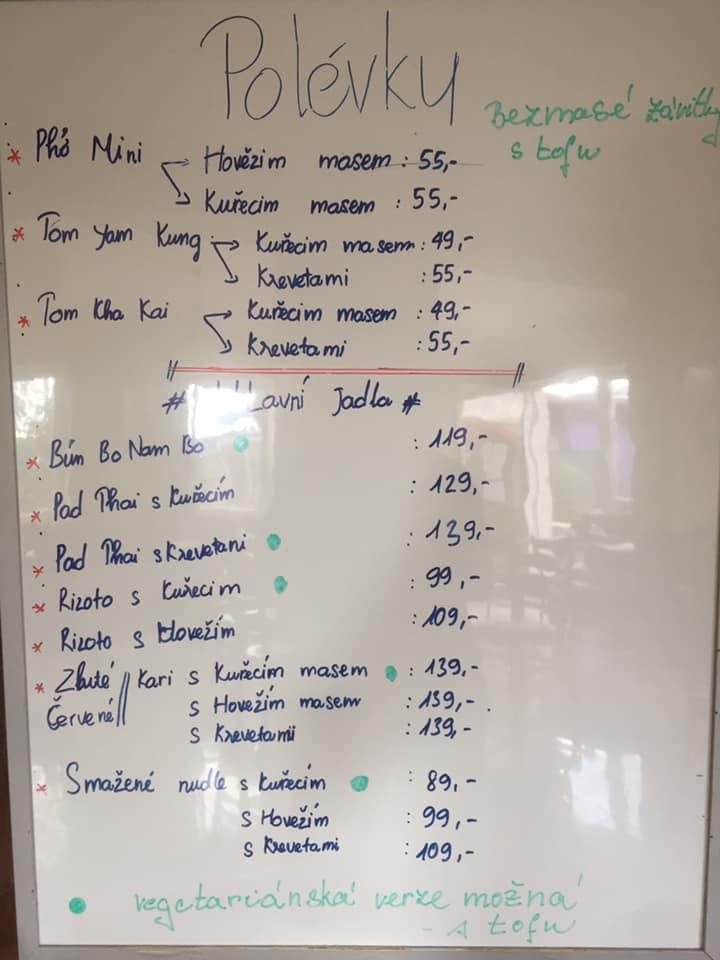 Polévky
Bezmasé závitky
s tofu
* Phở Mini → Hovězim masem : 55,-
→ Kuřecim masem : 55,-
* Tom Yam Kung → Kuřecim masem : 49,-
→ Krevetami : 55,-
* Tom Kha Kai → Kuřecim masem : 49,-
→ Krevetami : 55,-
# Hlavní Jadla #
* Bún Bo Nam Bo : 119,-
* Pad Thai s Kuřecím : 129,-
* Pad Thai s Krevetani : 139,-
* Rizoto s Kuřecim : 99,-
* Rizoto s Hovežím : 109,-
* Zluté // Kari s Kuřecím masem : 139,-
Červené // s Hovežím masem : 139,-
s Krevetamii : 139,-
* Smažené nudle s kuřecím : 89,-
s Hovežím : 99,-
s Krevetami : 109,-
vegetariánská verze možná
- s tofu